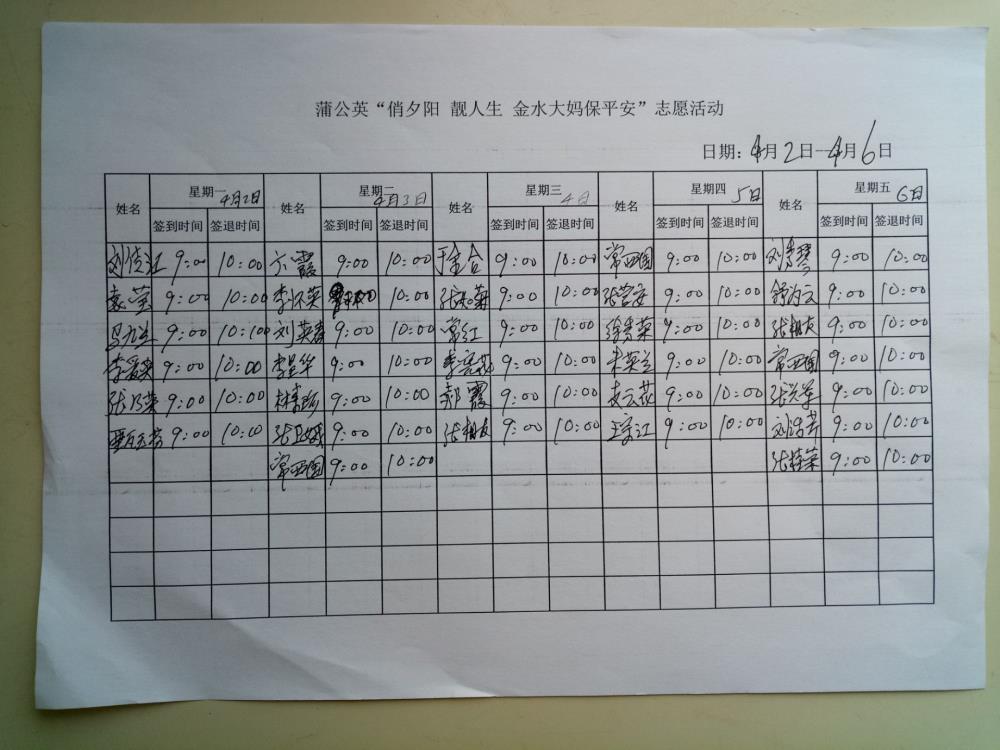 蒲公英“俏夕阳 靓人生 金水大妈保平安”志愿活动
日期：4月2日—4月6日
姓名 星期一 4月2日 姓名 星期二 4月3日 姓名 星期三 4日 姓名 星期四 5日 姓名 星期五 6日
签到时间 签退时间 签到时间 签退时间 签到时间 签退时间 签到时间 签退时间 签到时间 签退时间
9:00 10:00 六霞 9:00 10:00 9:00 10:00 常西国 9:00 10:00 刘秀琴 9:00 10:00
袁莹 9:00 10:00 李怀英 10:00 9:00 10:00 9:00 10:00 9:00 10:00
9:00 10:10 刘英春 9:00 10:00 常红 9:00 10:00 徐秀荣 9:00 10:00 张相友 9:00 10:00
李爱英 9:00 10:00 9:00 10:00 9:00 10:00 朱英兰 9:00 10:00 常西国 9:00 10:00
张乃荣 9:00 10:00 9:00 10:00 郝霞 9:00 10:00 9:00 10:00 9:00 10:00
9:00 10:00 张卫娥 9:00 10:00 张相友 9:00 10:00 9:00 10:00 9:00 10:00
常西国 9:00 10:00 9:00 10:00